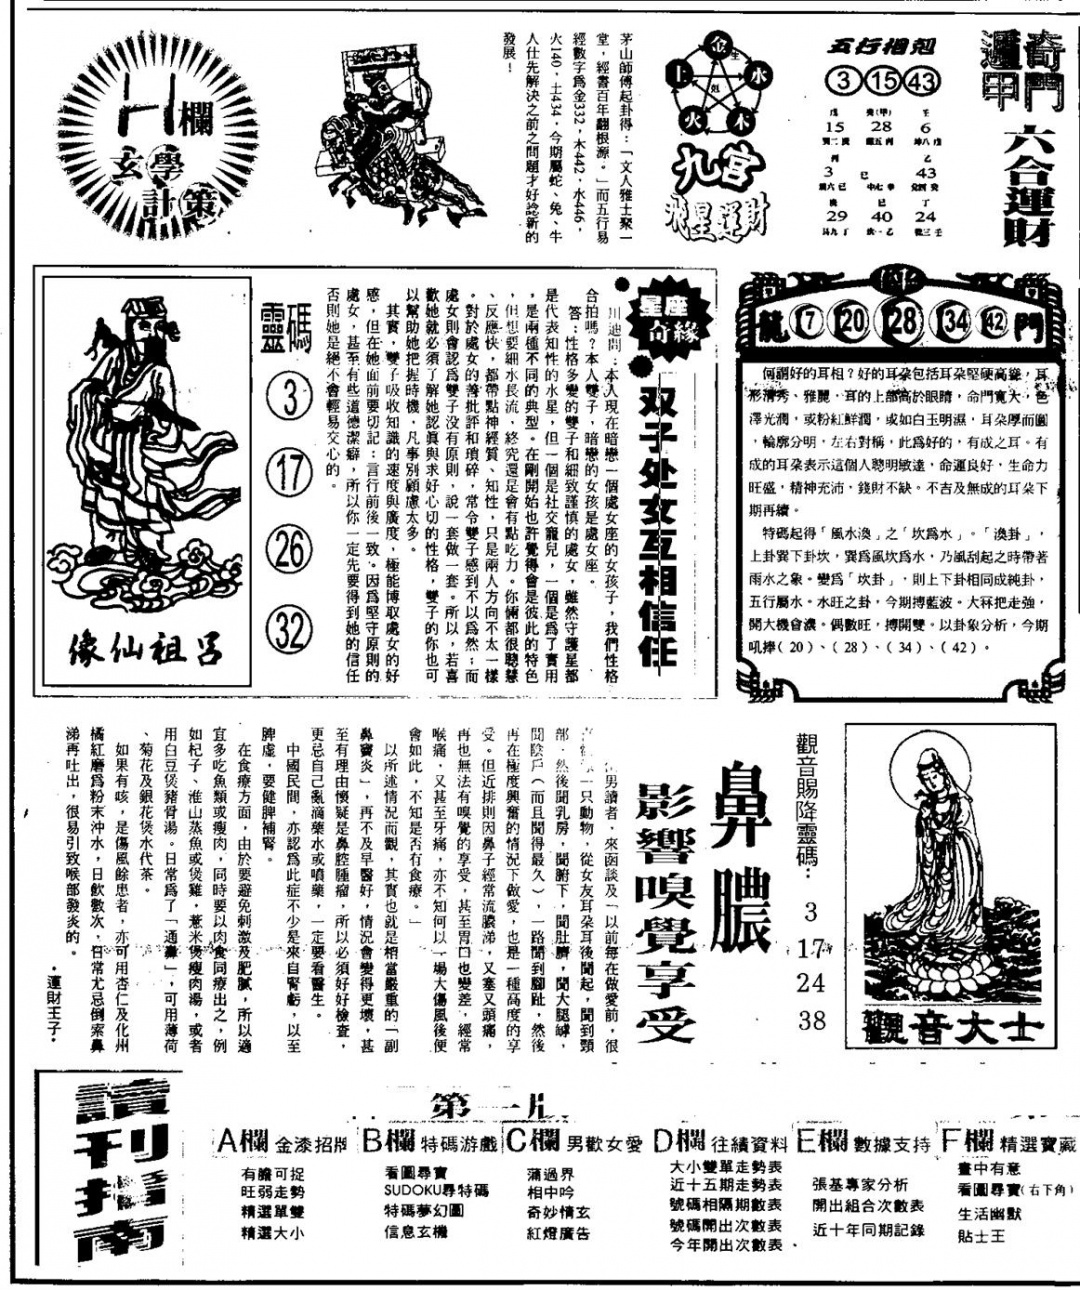 奇門
遁甲
六合運財
五行相剋
3 15 43
戊 癸(甲) 壬
15 28 6
丙 乙
3 巳 43
庚 己 丁
29 40 24
金
生
水
木
火
土
剋
九宮
飛星運財
茅山師傅起卦得：「文人雅士聚一
堂，經書百年翻根源。」而五行易
經數字為金332，木442，水446，
火140，土434，今期屬蛇、兔、牛
人仕先解決之前之問題才好諗新的
發展！
H欄
玄學
計策
龍 7 20 28 34 42 門
何謂好的耳相？好的耳朶包括耳朶堅硬高聳，耳
形清秀、雅麗，耳的上部高於眼睛，命門寬大，色
澤光潤，或粉紅鮮潤，或如白玉明濕，耳朶厚而圓
，輪廓分明，左右對稱，此為好的，有成之耳。有
成的耳朶表示這個人聰明敏達，命運良好，生命力
旺盛，精神充沛，錢財不缺。不吉及無成的耳朶下
期再續。
特碼起得「風水渙」之「坎為水」。「渙卦」，
上卦巽下卦坎，巽為風坎為水，乃風刮起之時帶著
雨水之象。變為「坎卦」，則上下卦相同成純卦，
五行屬水。水旺之卦，今期搏藍波。大冧把走強，
開大機會濃。偶數旺，搏開雙。以卦象分析，今期
吼捧(20)、(28)、(34)、(42)。
星座
奇緣
双子处女互相信任
川迪問：本人現在暗戀一個處女座的女孩子，我們性格
合拍嗎？本人雙子，暗戀的女孩是處女座。
答：性格多變的雙子和細致謹慎的處女，雖然守護星都
是代表知性的水星，但一個是社交寵兒，一個是為了實用
，是兩種不同的典型。在剛開始也許覺得會是彼此的特色
，但想要細水長流，終究還是會有點吃力。你倆都很聰慧
、反應快，都帶點神經質、知性，只是兩人方向不太一樣
。對於處女的善批評和瑣碎，常令雙子感到不以為然；而
處女則會認為雙子沒有原則，說一套做一套。所以，若喜
歡她就必須了解她認眞與求好心切的性格，雙子的你也可
以幫助她把握時機，凡事別顧慮太多。
其實，雙子吸收知識的速度與廣度，極能博取處女的好
感，但在她面前要切記：言行前後一致。因為堅守原則的
處女，甚至有些道德潔癖，所以你一定先要得到她的信任
否則她是絕不會輕易交心的。
靈碼
3
17
26
32
呂祖仙像
觀音大士
觀音賜降靈碼：
3
17
24
38
鼻膿
影響嗅覺享受
男讀者，來函談及「以前每在做愛前，很
一只動物，從女友耳朶耳後聞起，聞到頸
部，然後聞乳房，聞腑下，聞肚臍，聞大腿罅，
聞陰戶（而且聞得最久），一路聞到腳趾，然後
再在極度興奮的情況下做愛，也是一種高度的享
受。但近排則因鼻子經常流膿涕，又塞又頭痛，
再也無法有嗅覺的享受，甚至胃口也變差，經常
喉痛，又甚至牙痛，亦不知何以一場大傷風後便
會如此，不知是否有食療。」
以所述情況而觀，其實也就是相當嚴重的「副
鼻竇炎」，再不及早醫好，情況會變得更壞，甚
至有理由懷疑是鼻腔腫瘤，所以必須好好檢查，
更忌自己亂滴藥水或噴藥，一定要看醫生。
中國民間，亦認為此症不少是來自腎虧，以至
脾虛，要健脾補腎。
在食療方面，由於要避免刺激及肥膩，所以適
宜多吃魚類或瘦肉，同時要以肉食同療出之，例
如杞子、淮山蒸魚或煲雞，薏米煲瘦肉湯，或者
用白豆煲豬骨湯。日常為了「通鼻」，可用薄荷
、菊花及銀花煲水代茶。
如果有咳，是傷風餘患者，亦可用杏仁及化州
橘紅磨為粉末沖水，日飲數次，日常尤忌倒索鼻
涕再吐出，很易引致喉部發炎的。
·運財王子·
讀刊指南
第一版
A欄 金漆招牌
有膽可捉
旺弱走勢
精選單雙
精選大小
B欄 特碼游戲
看圖尋寶
SUDOKU尋特碼
特碼夢幻圖
信息玄機
C欄 男歡女愛
蒲過界
相中吟
奇妙情玄
紅燈廣告
D欄 往績資料
大小雙單走勢表
近十五期走勢表
號碼相隔期數表
號碼開出次數表
今年開出次數表
E欄 數據支持
張基專家分析
開出組合次數表
近十年同期記錄
F欄 精選寶藏
畫中有意
看圖尋寶(右下角)
生活幽默
貼士王